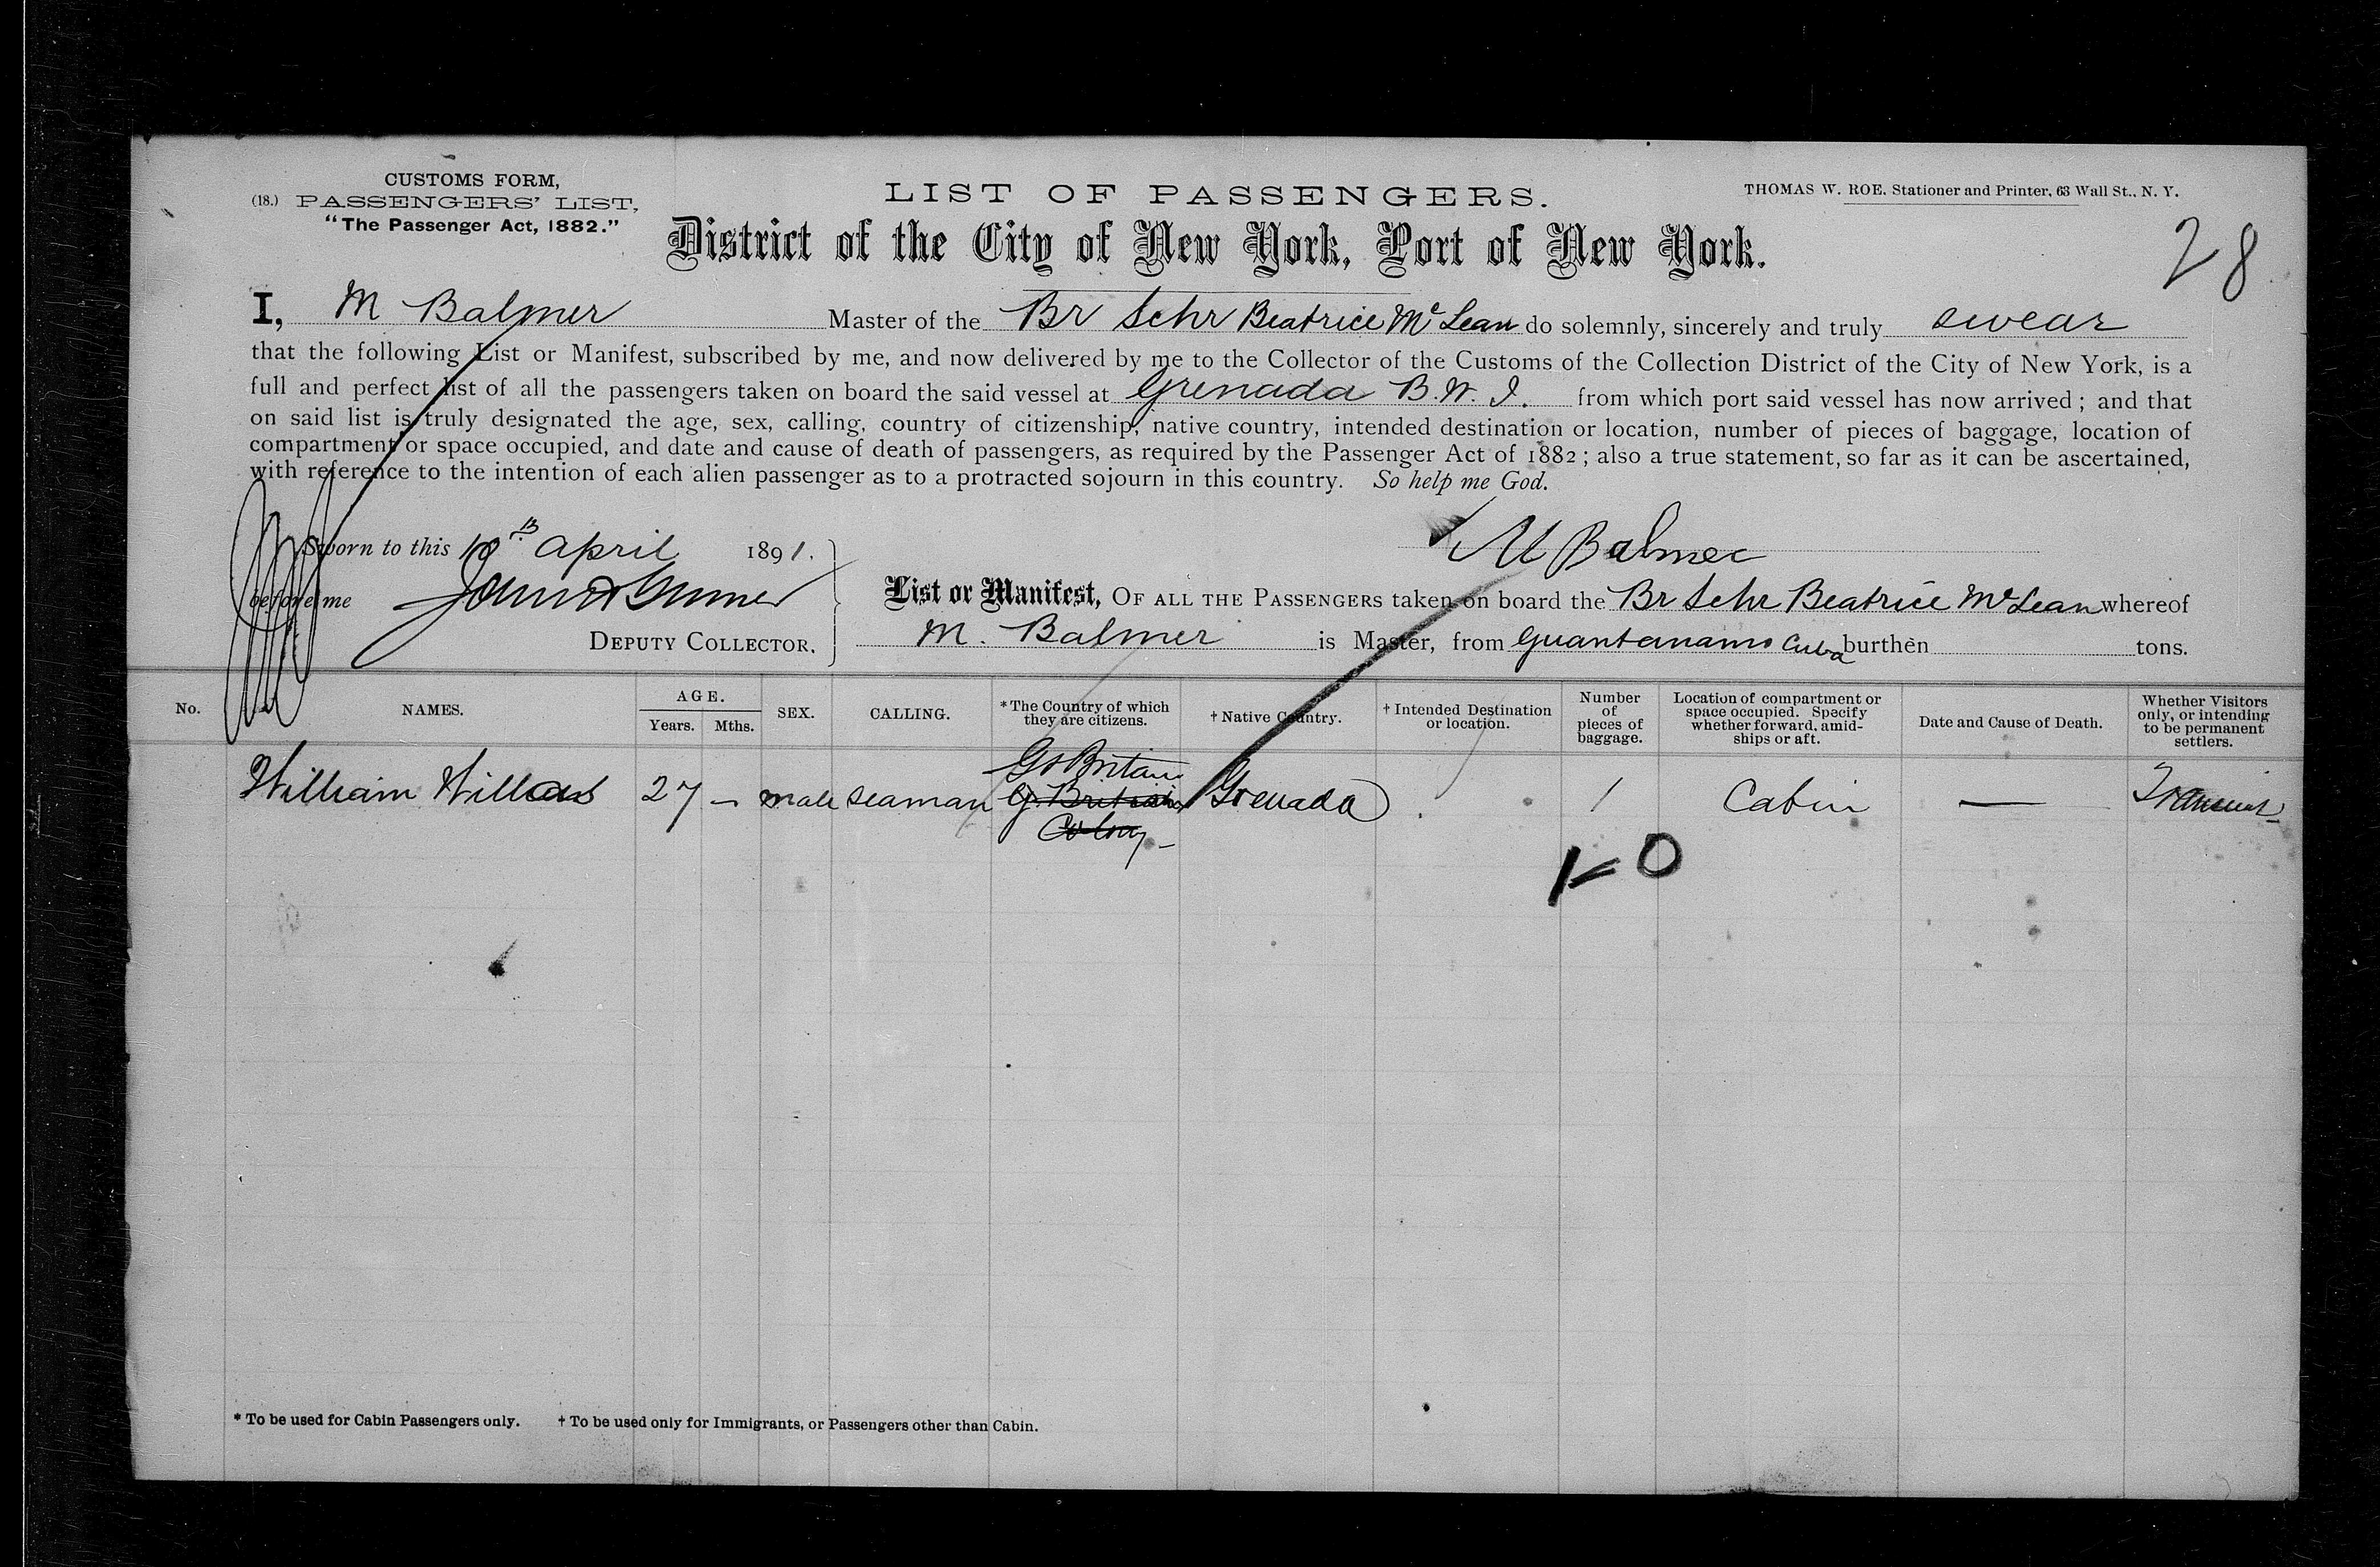 CUSTOMS FORM,
(18.) PASSENGERS' LIST,
"The Passenger Act, 1882."
LIST OF PASSENGERS.
THOMAS W. ROE, Stationer and Printer, 63 Wall St., N. Y.
District of the City of New York, Port of New York.
28
I, M Balmer Master of the Br Schr Beatrice McLean do solemnly, sincerely and truly swear
that the following List or Manifest, subscribed by me, and now delivered by me to the Collector of the Customs of the Collection District of the City of New York, is a
full and perfect list of all the passengers taken on board the said vessel at Grenada B.W.I. from which port said vessel has now arrived; and that
on said list is truly designated the age, sex, calling, country of citizenship, native country, intended destination or location, number of pieces of baggage, location of
compartment or space occupied, and date and cause of death of passengers, as required by the Passenger Act of 1882; also a true statement, so far as it can be ascertained,
with reference to the intention of each alien passenger as to a protracted sojourn in this country. So help me God.
Sworn to this 10th April 1891.
M Balmer
before me
DEPUTY COLLECTOR.
List or Manifest, OF ALL THE PASSENGERS taken on board the Br Schr Beatrice McLean whereof
M. Balmer is Master, from Guantanamo Cuba burthen tons.
No. NAMES. AGE. Years. Mths. SEX. CALLING. *The Country of which they are citizens. †Native Country. †Intended Destination or location. Number of pieces of baggage. Location of compartment or space occupied. Specify whether forward, amidships or aft. Date and Cause of Death. Whether Visitors only, or intending to be permanent settlers.
Gt Britain
William 27 – male seaman G. British Grenada 1 Cabin — Transient
Colony –
1–0
* To be used for Cabin Passengers only. † To be used only for Immigrants, or Passengers other than Cabin.